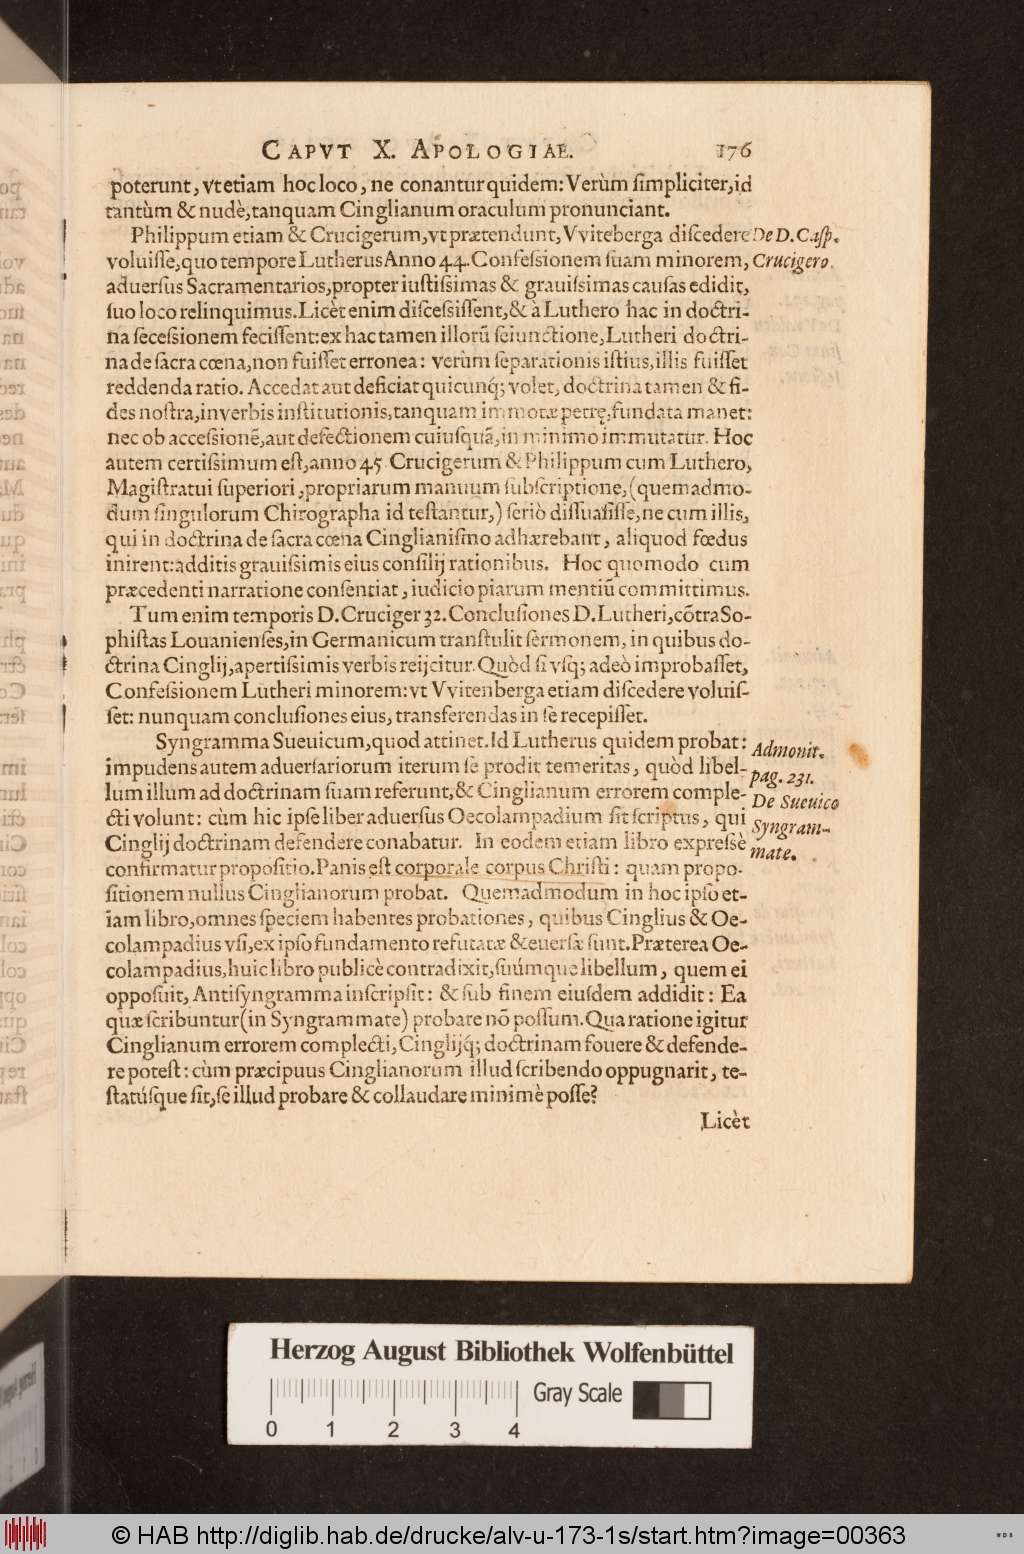 CAPVT X. APOLOGIAE. 176
poterunt, vt etiam hoc loco, ne conantur quidem: Verùm ſimpliciter, id
tantùm & nudè, tanquam Cinglianum oraculum pronunciant.
Philippum etiam & Crucigerum, vt prætendunt, VViteberga diſcedere
De D. Caſp.
voluiſſe, quo tempore Lutherus Anno 44. Confeſsionem ſuam minorem,
Crucigero.
aduerſus Sacramentarios, propter iuſtiſsimas & grauiſsimas cauſas edidit,
ſuo loco relinquimus. Licèt enim diſceſsiſſent, & à Luthero hac in doctri-
na ſeceſsionem feciſſent: ex hac tamen illorū ſeiunctione, Lutheri doctri-
na de ſacra cœna, non fuiſſet erronea: verùm ſeparationis iſtius, illis fuiſſet
reddenda ratio. Accedat aut deficiat quicunq́; volet, doctrina tamen & fi-
des noſtra, in verbis inſtitutionis, tanquam immotæ petrę, fundata manet:
nec ob acceſsionē, aut defectionem cuiuſquā, in minimo immutatur. Hoc
autem certiſsimum eſt, anno 45. Crucigerum & Philippum cum Luthero,
Magiſtratui ſuperiori, propriarum manuum ſubſcriptione, (quemadmo-
dum ſingulorum Chirographa id teſtantur,) ſeriò diſſuaſiſſe, ne cum illis,
qui in doctrina de ſacra cœna Cinglianiſmo adhærebant, aliquod fœdus
inirent: additis grauiſsimis eius conſilij rationibus. Hoc quomodo cum
præcedenti narratione conſentiat, iudicio piarum mentiū committimus.
Tum enim temporis D. Cruciger 32. Concluſiones D. Lutheri, cōtra So-
phiſtas Louanienſes, in Germanicum tranſtulit ſermonem, in quibus do-
ctrina Cinglij, apertiſsimis verbis reijcitur. Quòd ſi vſq; adeò improbaſſet,
Confeſsionem Lutheri minorem: vt VVitenberga etiam diſcedere voluiſ-
ſet: nunquam concluſiones eius, transferendas in ſe recepiſſet.
Syngramma Sueuicum, quod attinet. Id Lutherus quidem probat:
Admonit.
impudens autem aduerſariorum iterum ſe prodit temeritas, quòd libel-
pag. 231.
lum illum ad doctrinam ſuam referunt, & Cinglianum errorem comple-
De Sueuico
cti volunt: cùm hic ipſe liber aduerſus Oecolampadium ſit ſcriptus, qui
Syngram-
Cinglij doctrinam defendere conabatur. In eodem etiam libro expreſsè
mate.
confirmatur propoſitio. Panis eſt corporale corpus Chriſti: quam propo-
ſitionem nullus Cinglianorum probat. Quemadmodum in hoc ipſo et-
iam libro, omnes ſpeciem habentes probationes, quibus Cinglius & Oe-
colampadius vſi, ex ipſo fundamento refutatæ & euerſæ ſunt. Præterea Oe-
colampadius, huic libro publicè contradixit, ſuúmque libellum, quem ei
oppoſuit, Antiſyngramma inſcripſit: & ſub finem eiuſdem addidit: Ea
quæ ſcribuntur (in Syngrammate) probare nō poſſum. Qua ratione igitur
Cinglianum errorem complecti, Cinglijq́; doctrinam fouere & defende-
re poteſt: cùm præcipuus Cinglianorum illud ſcribendo oppugnarit, te-
ſtatúſque ſit, ſe illud probare & collaudare minimè poſſe?
Licèt
Herzog August Bibliothek Wolfenbüttel
Gray Scale
0 1 2 3 4
© HAB http://diglib.hab.de/drucke/alv-u-173-1s/start.htm?image=00363